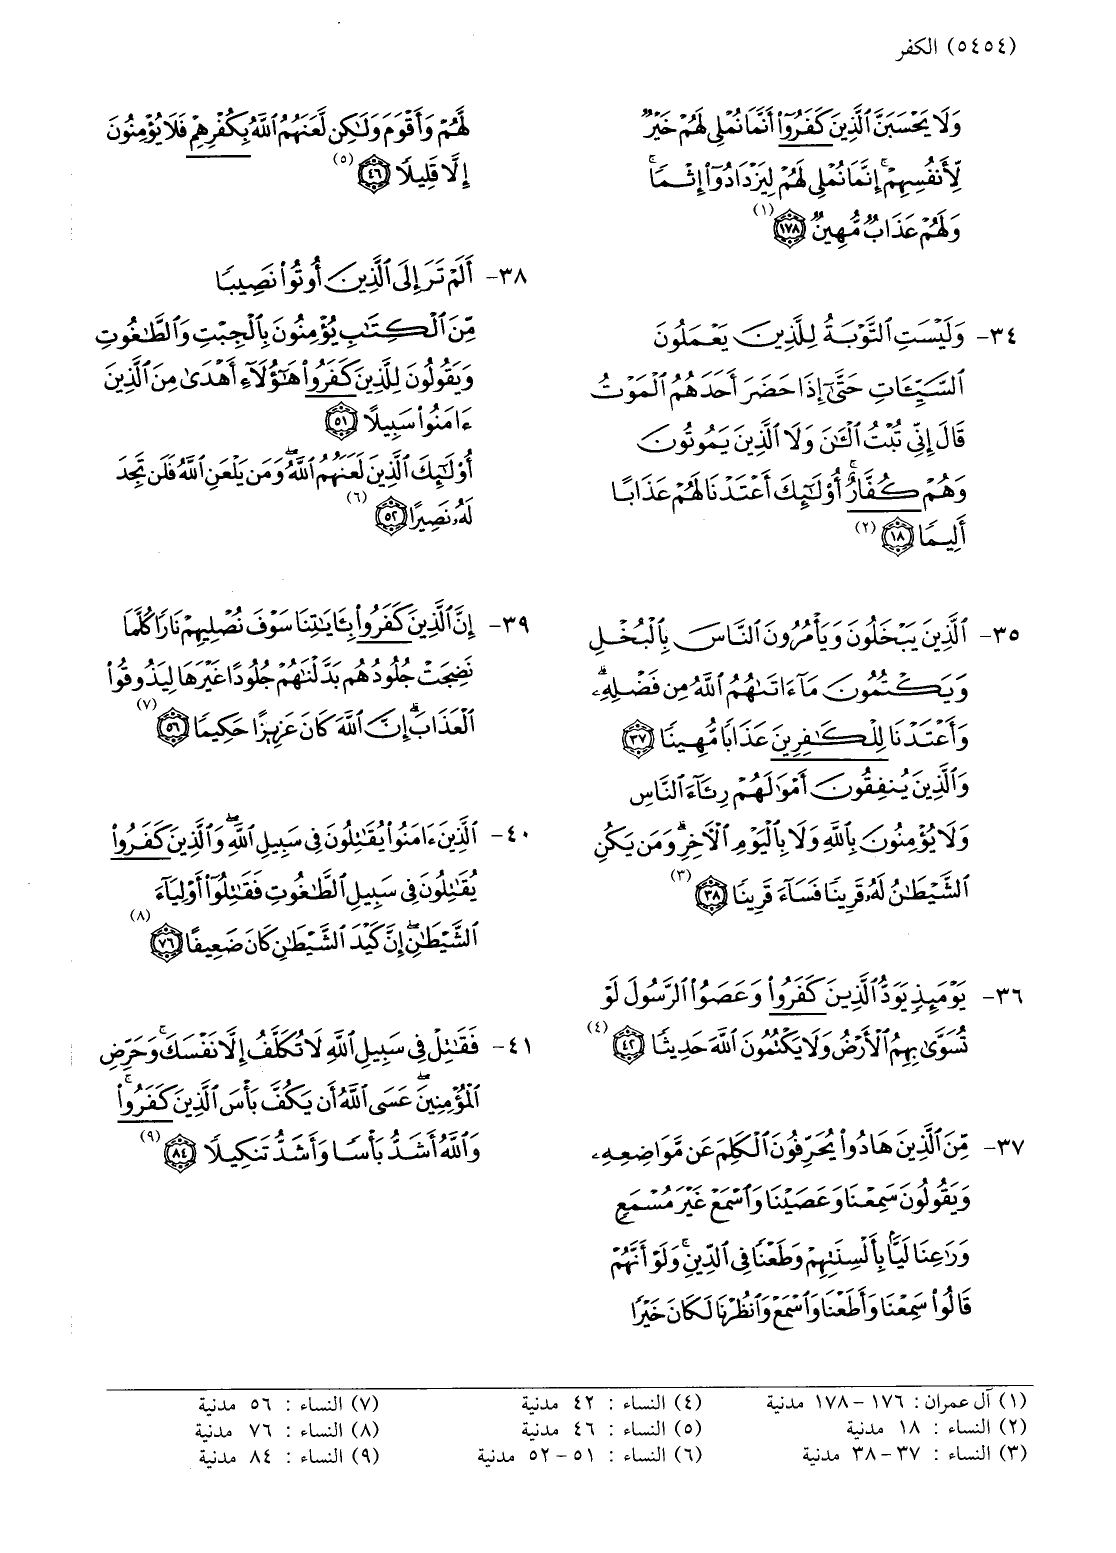 (٥٤٥٤) الكفر
وَلَا يَحْسَبَنَّ ٱلَّذِينَ كَفَرُوٓا۟ أَنَّمَا نُمْلِى لَهُمْ خَيْرٌ
لِّأَنفُسِهِمْ ۚ إِنَّمَا نُمْلِى لَهُمْ لِيَزْدَادُوٓا۟ إِثْمًا ۚ
وَلَهُمْ عَذَابٌ مُّهِينٌ ١٧٨ (١)
٣٤- وَلَيْسَتِ ٱلتَّوْبَةُ لِلَّذِينَ يَعْمَلُونَ
ٱلسَّيِّـَٔاتِ حَتَّىٰٓ إِذَا حَضَرَ أَحَدَهُمُ ٱلْمَوْتُ
قَالَ إِنِّى تُبْتُ ٱلْـَٰٔنَ وَلَا ٱلَّذِينَ يَمُوتُونَ
وَهُمْ كُفَّارٌ ۚ أُو۟لَـٰٓئِكَ أَعْتَدْنَا لَهُمْ عَذَابًا
أَلِيمًا ١٨ (٢)
٣٥- ٱلَّذِينَ يَبْخَلُونَ وَيَأْمُرُونَ ٱلنَّاسَ بِٱلْبُخْلِ
وَيَكْتُمُونَ مَآ ءَاتَىٰهُمُ ٱللَّهُ مِن فَضْلِهِۦ ۗ
وَأَعْتَدْنَا لِلْكَـٰفِرِينَ عَذَابًا مُّهِينًا ٣٧
وَٱلَّذِينَ يُنفِقُونَ أَمْوَٰلَهُمْ رِئَآءَ ٱلنَّاسِ
وَلَا يُؤْمِنُونَ بِٱللَّهِ وَلَا بِٱلْيَوْمِ ٱلْـَٔاخِرِ ۗ وَمَن يَكُنِ
ٱلشَّيْطَـٰنُ لَهُۥ قَرِينًا فَسَآءَ قَرِينًا ٣٨ (٣)
٣٦- يَوْمَئِذٍ يَوَدُّ ٱلَّذِينَ كَفَرُوا۟ وَعَصَوُا۟ ٱلرَّسُولَ لَوْ
تُسَوَّىٰ بِهِمُ ٱلْأَرْضُ وَلَا يَكْتُمُونَ ٱللَّهَ حَدِيثًا ٤٢ (٤)
٣٧- مِّنَ ٱلَّذِينَ هَادُوا۟ يُحَرِّفُونَ ٱلْكَلِمَ عَن مَّوَاضِعِهِۦ
وَيَقُولُونَ سَمِعْنَا وَعَصَيْنَا وَٱسْمَعْ غَيْرَ مُسْمَعٍ
وَرَٰعِنَا لَيًّۢا بِأَلْسِنَتِهِمْ وَطَعْنًا فِى ٱلدِّينِ ۚ وَلَوْ أَنَّهُمْ
قَالُوا۟ سَمِعْنَا وَأَطَعْنَا وَٱسْمَعْ وَٱنظُرْنَا لَكَانَ خَيْرًا
لَّهُمْ وَأَقْوَمَ وَلَـٰكِن لَّعَنَهُمُ ٱللَّهُ بِكُفْرِهِمْ فَلَا يُؤْمِنُونَ
إِلَّا قَلِيلًا ٤٦ (٥)
٣٨- أَلَمْ تَرَ إِلَى ٱلَّذِينَ أُوتُوا۟ نَصِيبًا
مِّنَ ٱلْكِتَـٰبِ يُؤْمِنُونَ بِٱلْجِبْتِ وَٱلطَّـٰغُوتِ
وَيَقُولُونَ لِلَّذِينَ كَفَرُوا۟ هَـٰٓؤُلَآءِ أَهْدَىٰ مِنَ ٱلَّذِينَ
ءَامَنُوا۟ سَبِيلًا ٥١
أُو۟لَـٰٓئِكَ ٱلَّذِينَ لَعَنَهُمُ ٱللَّهُ ۖ وَمَن يَلْعَنِ ٱللَّهُ فَلَن تَجِدَ
لَهُۥ نَصِيرًا ٥٢ (٦)
٣٩- إِنَّ ٱلَّذِينَ كَفَرُوا۟ بِـَٔايَـٰتِنَا سَوْفَ نُصْلِيهِمْ نَارًا كُلَّمَا
نَضِجَتْ جُلُودُهُم بَدَّلْنَـٰهُمْ جُلُودًا غَيْرَهَا لِيَذُوقُوا۟
ٱلْعَذَابَ ۗ إِنَّ ٱللَّهَ كَانَ عَزِيزًا حَكِيمًا ٥٦ (٧)
٤٠- ٱلَّذِينَ ءَامَنُوا۟ يُقَـٰتِلُونَ فِى سَبِيلِ ٱللَّهِ ۖ وَٱلَّذِينَ كَفَرُوا۟
يُقَـٰتِلُونَ فِى سَبِيلِ ٱلطَّـٰغُوتِ فَقَـٰتِلُوٓا۟ أَوْلِيَآءَ
ٱلشَّيْطَـٰنِ ۖ إِنَّ كَيْدَ ٱلشَّيْطَـٰنِ كَانَ ضَعِيفًا ٧٦ (٨)
٤١- فَقَـٰتِلْ فِى سَبِيلِ ٱللَّهِ لَا تُكَلَّفُ إِلَّا نَفْسَكَ ۚ وَحَرِّضِ
ٱلْمُؤْمِنِينَ ۖ عَسَى ٱللَّهُ أَن يَكُفَّ بَأْسَ ٱلَّذِينَ كَفَرُوا۟ ۚ
وَٱللَّهُ أَشَدُّ بَأْسًا وَأَشَدُّ تَنكِيلًا ٨٤ (٩)
(١) آل عمران : ١٧٦ – ١٧٨ مدنية
(٢) النساء : ١٨ مدنية
(٣) النساء : ٣٧ – ٣٨ مدنية
(٤) النساء : ٤٢ مدنية
(٥) النساء : ٤٦ مدنية
(٦) النساء : ٥١ – ٥٢ مدنية
(٧) النساء : ٥٦ مدنية
(٨) النساء : ٧٦ مدنية
(٩) النساء : ٨٤ مدنية